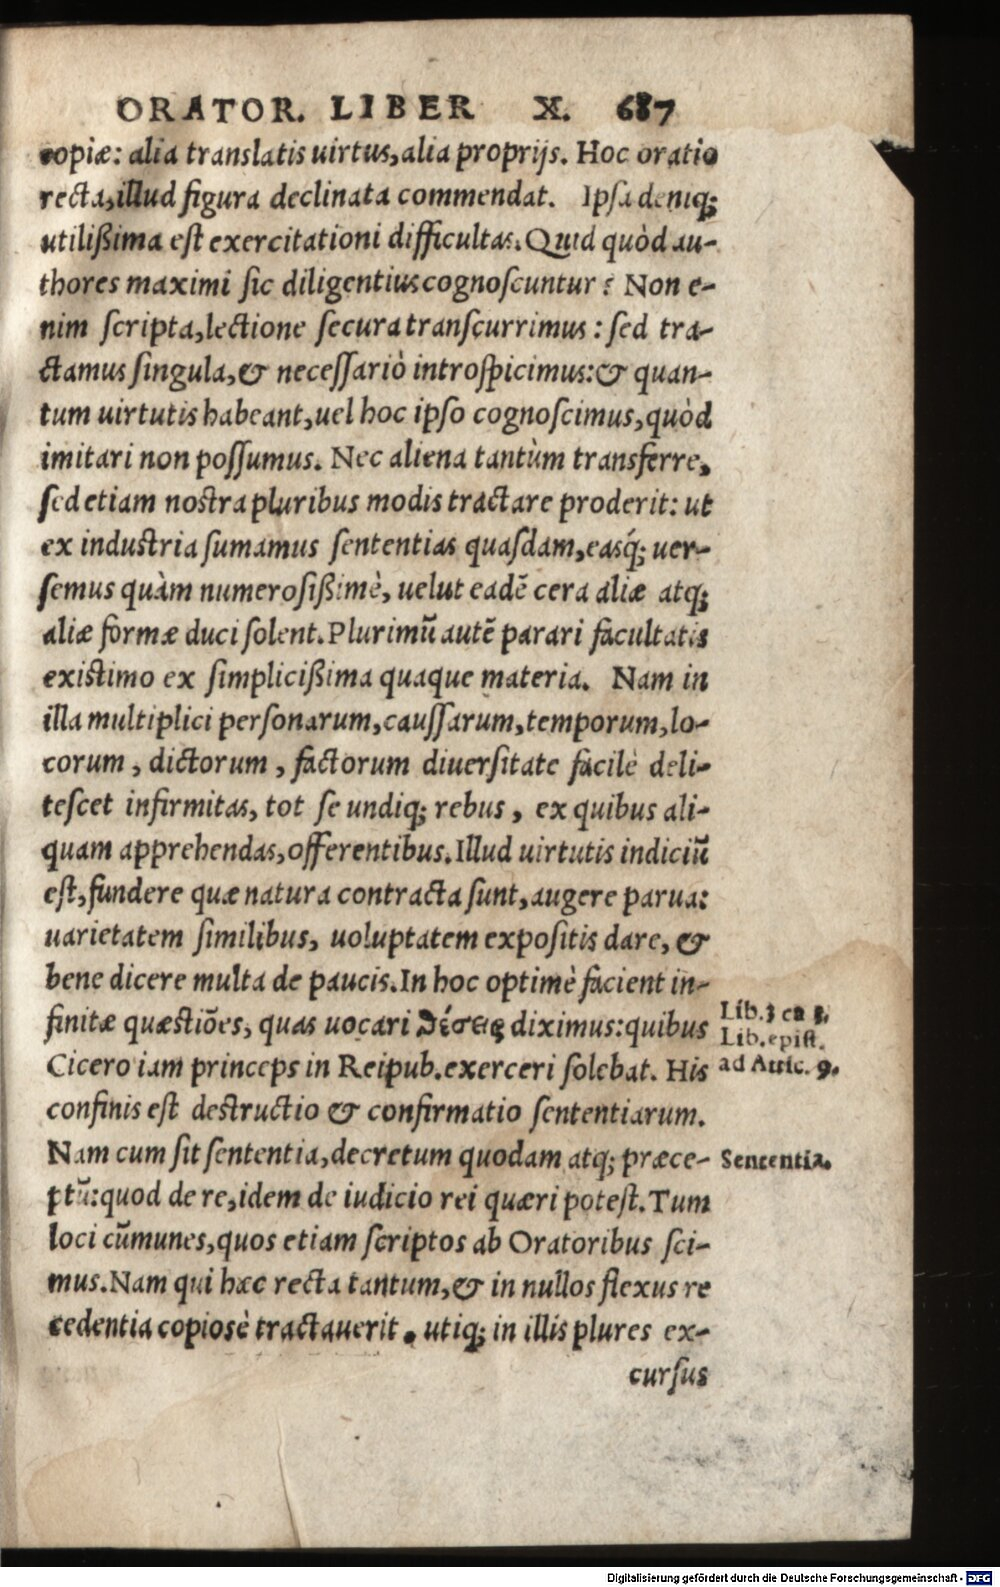 ORATOR. LIBER X. 687
copiæ: alia translatis uirtus, alia proprijs. Hoc oratio
recta, illud figura declinata commendat. Ipsa deniq;
utilißima est exercitationi difficultas. Quid quòd au-
thores maximi sic diligentius cognoscuntur? Non e-
nim scripta, lectione secura transcurrimus: sed tra-
ctamus singula, & necessariò introspicimus: & quan-
tum uirtutis habeant, uel hoc ipso cognoscimus, quòd
imitari non possumus. Nec aliena tantùm transferre,
sed etiam nostra pluribus modis tractare proderit: ut
ex industria sumamus sententias quasdam, easq́; uer-
semus quàm numerosißimè, uelut eadē cera aliæ atq;
aliæ formæ duci solent. Plurimū autē parari facultatis
existimo ex simplicißima quaque materia. Nam in
illa multiplici personarum, caussarum, temporum, lo-
corum, dictorum, factorum diuersitate facilè deli-
tescet infirmitas, tot se undiq; rebus, ex quibus ali-
quam apprehendas, offerentibus. Illud uirtutis indiciū
est, fundere quæ natura contracta sunt, augere parua:
uarietatem similibus, uoluptatem expositis dare, &
bene dicere multa de paucis. In hoc optimè facient in-
finitæ quæstiōes, quas uocari θέσεις diximus: quibus
Lib.3 ca 5.
Lib. epist.
Cicero iam princeps in Reipub. exerceri solebat. His
ad Attic. 9.
confinis est destructio & confirmatio sententiarum.
Nam cum sit sententia, decretum quodam atq; præce-
Sententia.
ptū: quod de re, idem de iudicio rei quæri potest. Tum
loci cūmunes, quos etiam scriptos ab Oratoribus sci-
mus. Nam qui hæc recta tantum, & in nullos flexus re
cedentia copiosè tractauerit. utiq; in illis plures ex-
cursus
Digitalisierung gefördert durch die Deutsche Forschungsgemeinschaft - DFG